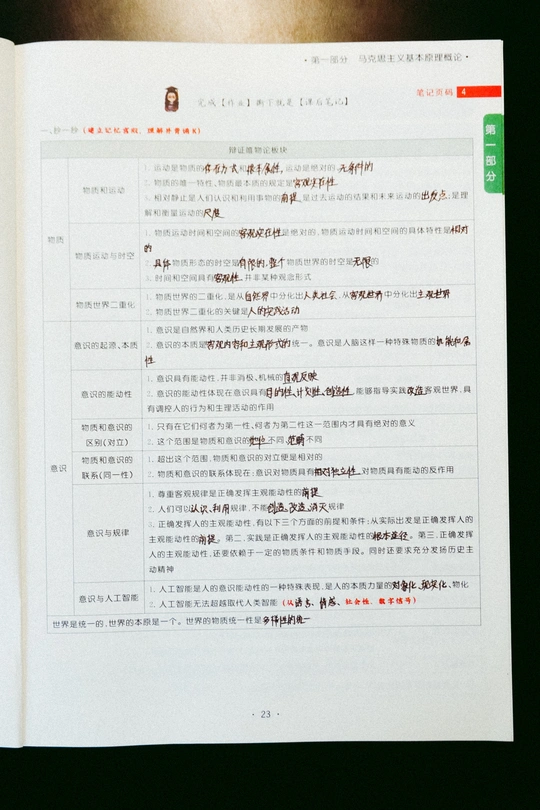 ·第一部分 马克思主义基本原理概论·
笔记页码 4
完成【作业】撕下就是【课后笔记】
第一部分
一、抄一抄(建立记忆宫殿、理解并背诵!)
辩证唯物论板块
物质
物质和运动
1. 运动是物质的存在方式和根本属性,运动是绝对的、无条件的
2. 物质的唯一特性,物质最本质的规定是客观实在性
3. 相对静止是人们认识和利用事物的前提,是过去运动的结果和未来运动的出发点;是理
解和衡量运动的尺度
物质运动与时空
1. 物质运动时间和空间的客观实在性是绝对的,物质运动时间和空间的具体特性是相对
的
2. 具体物质形态的时空是有限的,整个物质世界的时空是无限的
3. 时间和空间具有客观性,并非某种观念形式
物质世界二重化
1. 物质世界的二重化,是从自然界中分化出人类社会,从客观世界中分化出主观世界
2. 物质世界二重化的关键是人的实践活动
意识
意识的起源、本质
1. 意识是自然界和人类历史长期发展的产物
2. 意识的本质是客观内容和主观形式的统一。意识是人脑这样一种特殊物质的机能和属
性
意识的能动性
1. 意识具有能动性,并非消极、机械的直观反映
2. 意识的能动性体现在意识具有目的性、计划性、创造性,能够指导实践改造客观世界,具
有调控人的行为和生理活动的作用
物质和意识的
区别(对立)
1. 只有在它们何者为第一性,何者为第二性这一范围内才具有绝对的意义
2. 这个范围是物质和意识的地位不同,范畴不同
物质和意识的
联系(同一性)
1. 超出这个范围,物质和意识的对立便是相对的
2. 物质和意识的联系体现在:意识对物质具有相对独立性,对物质具有能动的反作用
意识与规律
1. 尊重客观规律是正确发挥主观能动性的前提
2. 人们可以认识、利用规律,不能创造、改造、消灭规律
3. 正确发挥人的主观能动性,有以下三个方面的前提和条件:从实际出发是正确发挥人的
主观能动性的前提。第二,实践是正确发挥人的主观能动性的根本途径。第三,正确发挥人
的主观能动性,还要依赖于一定的物质条件和物质手段。同时还要求充分发扬历史主
动精神
意识与人工智能
1. 人工智能是人的意识能动性的一种特殊表现,是人的本质力量的对象化、现实化、物化
2. 人工智能无法超越取代人类智能(从语言、情感、社会性、数字信号)
世界是统一的,世界的本原是一个。世界的物质统一性是多样性的统一
·23·